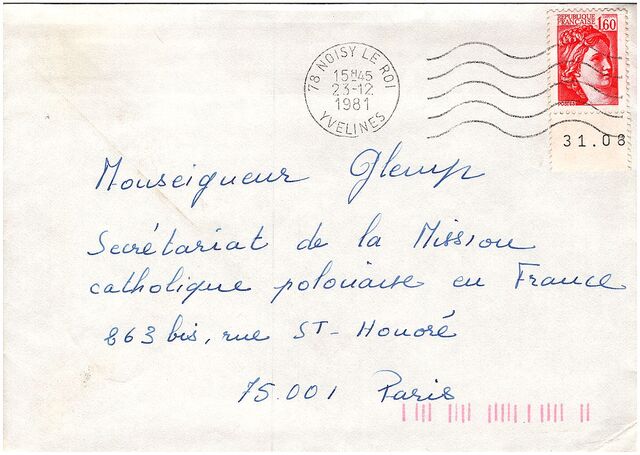 REPUBLIQUE
FRANÇAISE 1,60
78 - NOISY LE ROI
15H45
23-12
1981
YVELINES
31.08
Monseigneur Glemp
Secrétariat de la Mission
catholique polonaise en France
263 bis, rue ST-Honoré
75.001 Paris